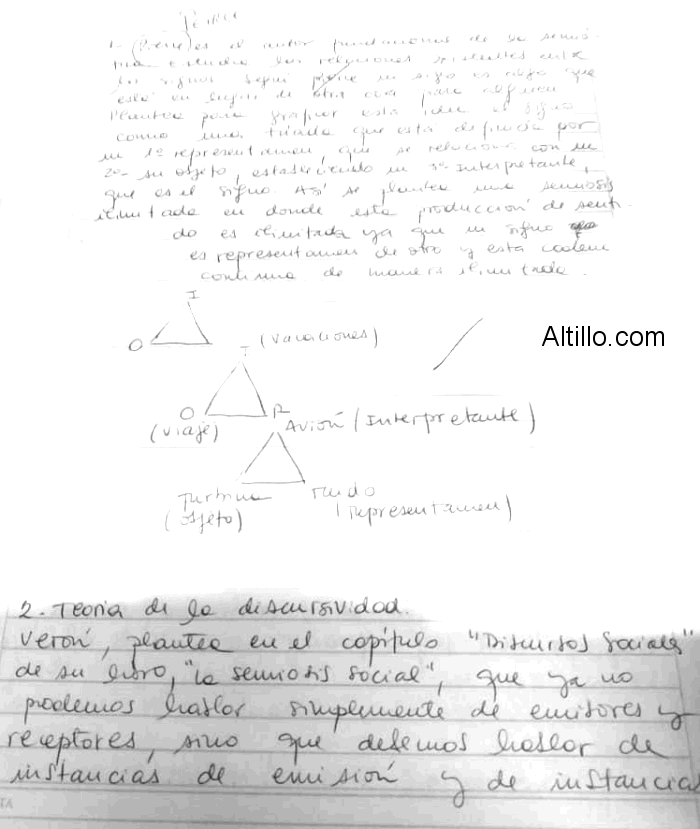 1- (Peirce) es el autor fundacional de la semió-
tica. Estudia las relaciones existentes entre
los signos. Según un signo es algo que
está en lugar de otra cosa para alguien
Plantea para graficar esta idea el signo
como una tríada que está definida por
un 1º representamen, que se relaciona con un
2º su objeto, estableciendo un 3º interpretante,
que es el signo. Así se plantea una semiosis
ilimitada en donde esta producción de senti-
do es ilimitada ya que un signo
es representamen de otro y esta cadena
continua de manera ilimitada.
I
O
Altillo.com
I (vacaciones)
O R
(viaje) Avión (Interpretante)
Turbina Ruido
(objeto) (representamen)
2. Teoría de la discursividad.
Verón, plantea en el capítulo "Discursos Sociales"
de su libro, "la semiosis social", que ya no
podemos hablar simplemente de emisores y
receptores, sino que debemos hablar de
instancias de emisión y de instancias